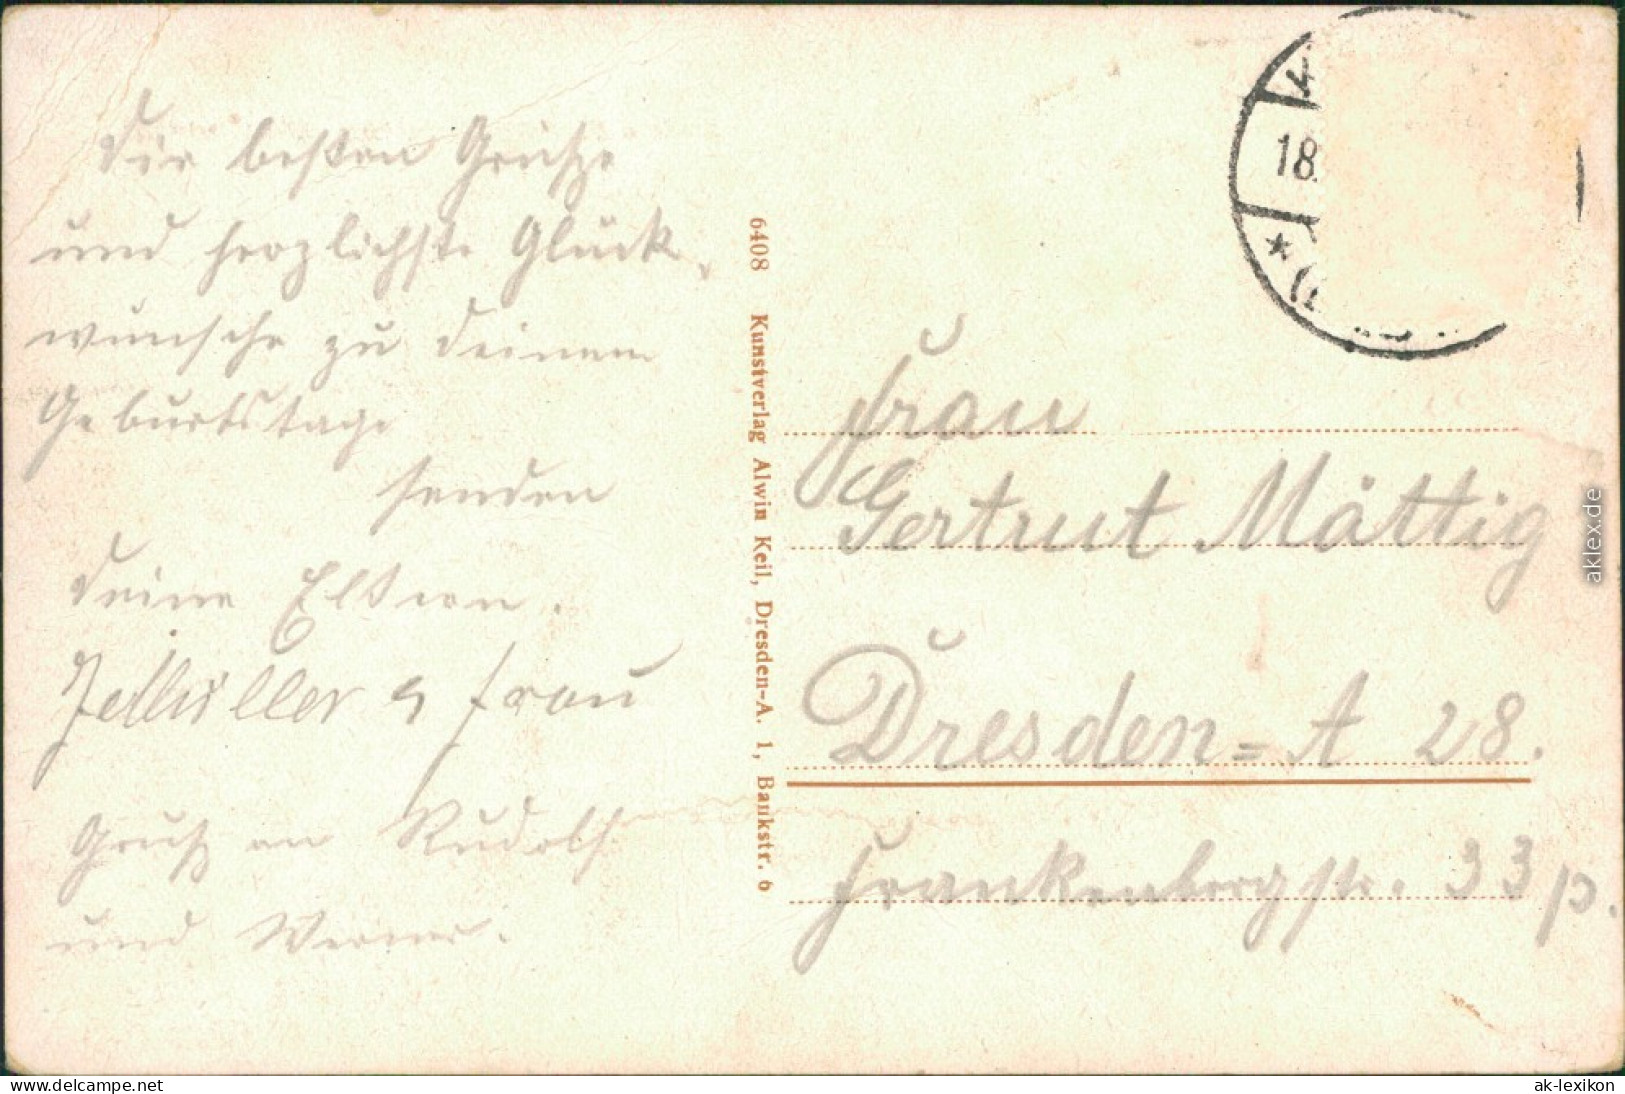 Die besten Grüße
und herzlichste Glück-
wünsche zu Deinem
Geburtstage
senden
Deine Eltern.
Müller u Frau
Gruß an Rudolf
und Werner.
6408 Kunstverlag Alwin Keil, Dresden-A. 1, Bankstr. 6
18.
Frau
Gertrut Mättig
Dresden=A 28.
Frankenbergstr. 33 p.
aklex.de
www.delcampe.net
ak-lexikon